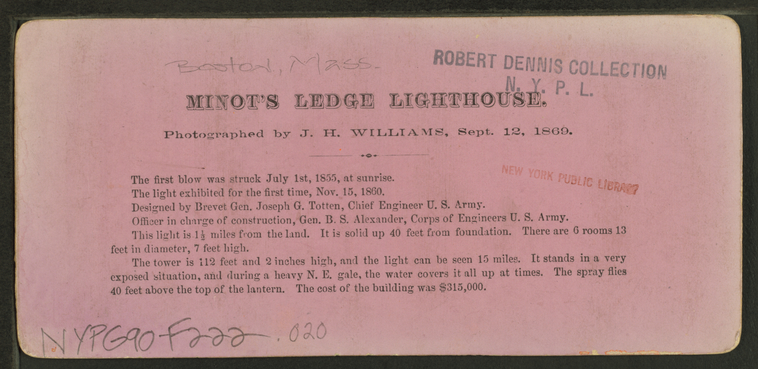 Boston, Mass.
ROBERT DENNIS COLLECTION
N. Y. P. L.
MINOT'S LEDGE LIGHTHOUSE.
Photographed by J. H. WILLIAMS, Sept. 12, 1869.
NEW YORK PUBLIC LIBRARY
The first blow was struck July 1st, 1855, at sunrise.
The light exhibited for the first time, Nov. 15, 1860.
Designed by Brevet Gen. Joseph G. Totten, Chief Engineer U. S. Army.
Officer in charge of construction, Gen. B. S. Alexander, Corps of Engineers U. S. Army.
This light is 1½ miles from the land. It is solid up 40 feet from foundation. There are 6 rooms 13
feet in diameter, 7 feet high.
The tower is 112 feet and 2 inches high, and the light can be seen 15 miles. It stands in a very
exposed situation, and during a heavy N. E. gale, the water covers it all up at times. The spray flies
40 feet above the top of the lantern. The cost of the building was $315,000.
NYPG90-F222 .020